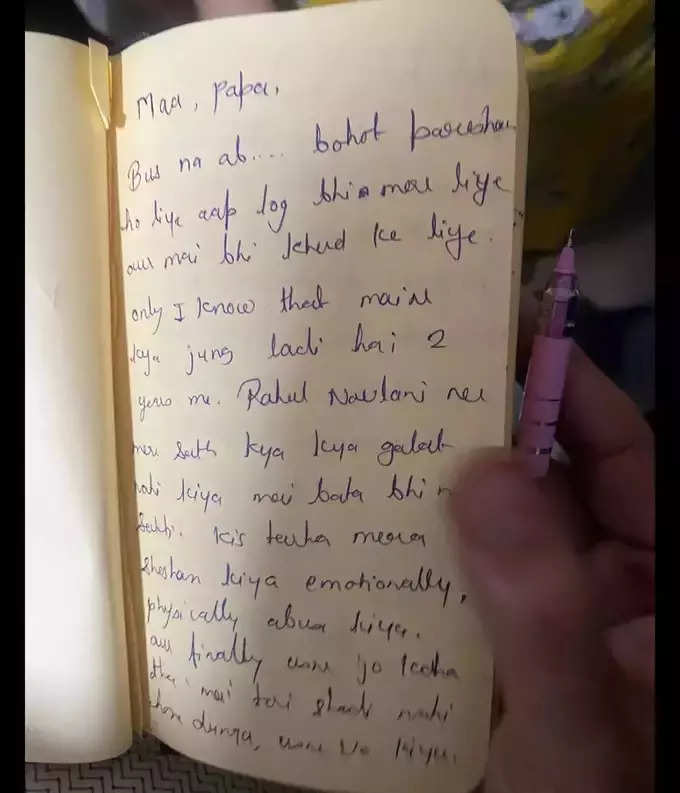 Maa, Papa,
Bus na ab.... bohot pareshan
ho liye aap log bhi mere liye
aur mai bhi khud ke liye.
only I know that maine
kya jung ladi hai 2
years me. Rahul Navlani ne
mere sath kya kya galat
nahi kiya mai bata bhi
Sakti. kis tarha mera
shoshan kiya emotionally,
physically abuse kiya.
aur finally usne jo kaha
tha, mai teri shadi nahi
hone dunga, usne vo kiya.